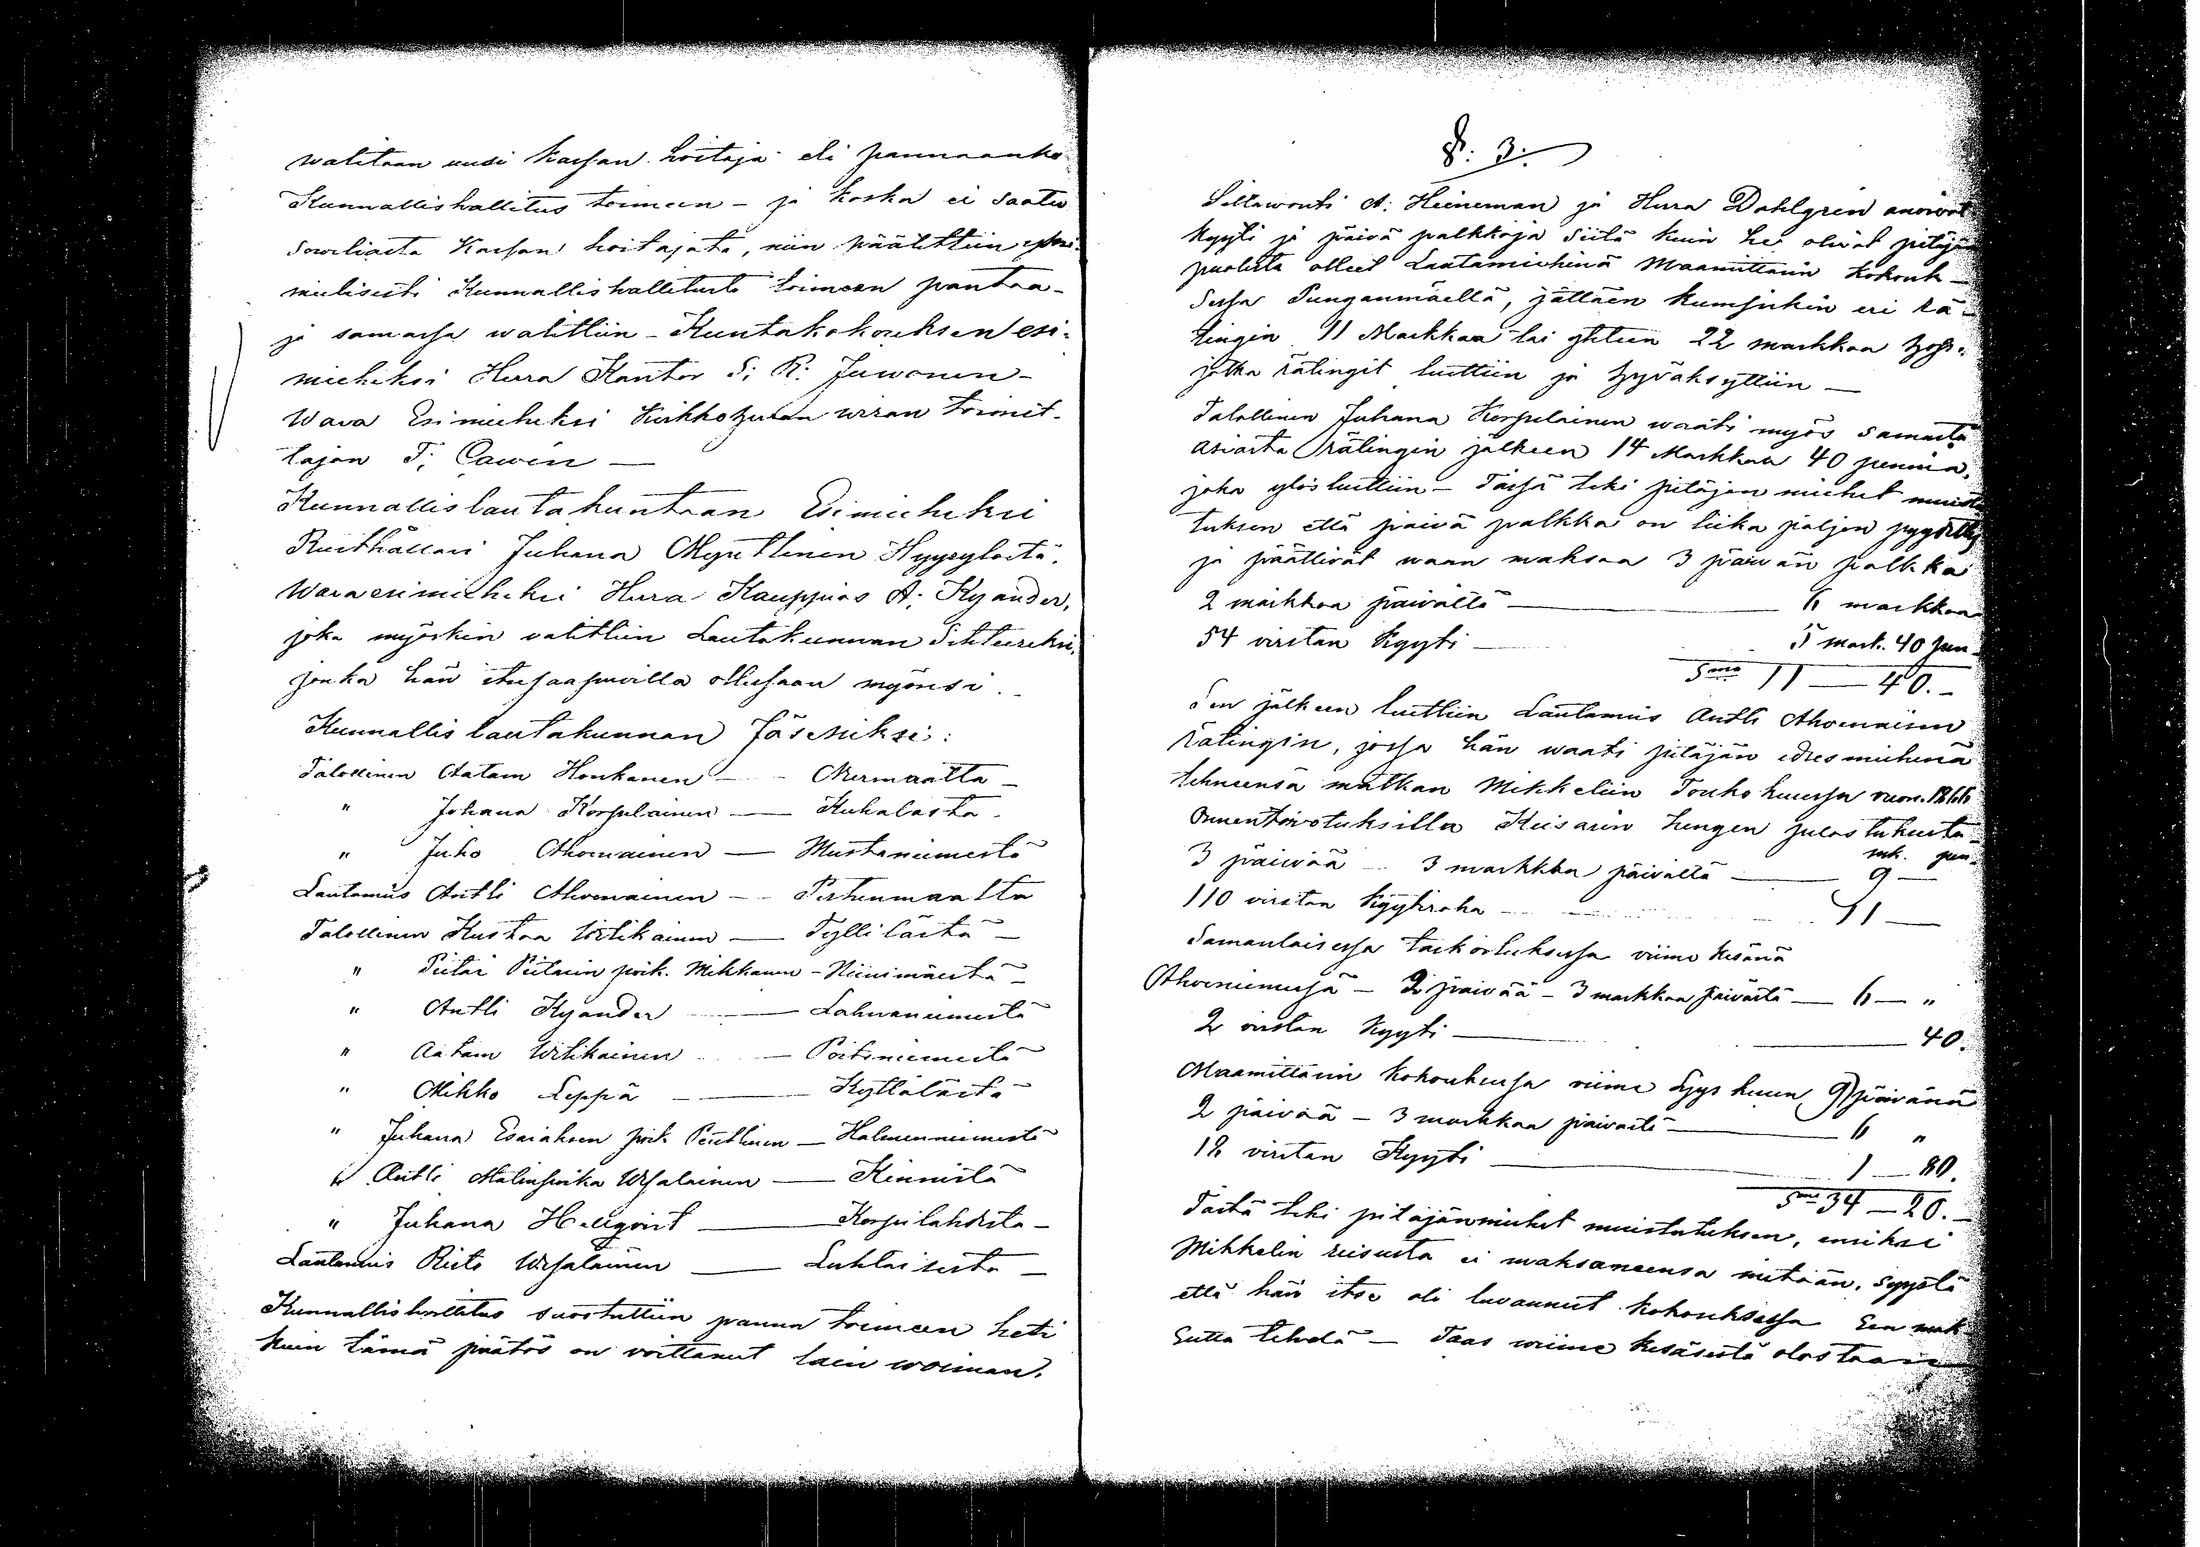 walitaan uusi kassan hoitaja eli pannaanko
Kunnallishallitus toimeen – ja koska ei saatu
soweliasta Kassan hoitajata, niin päätettiin yksi-
mielisesti Kunnallishallitusta toimeen pantaa-
ja samassa walittiin – Kuntakokouksen esi-
mieheksi Herra Kantor S: R: Juwonen –
Wara Esimieheksi Kirkkoherran wiran toimit-
tajan T: Cawén —
Kunnallislautakuntaan Esimieheksi
Rusthollari Juhana Myttinen Hyysylästä.
Waraesimieheksi Herra Kauppias A: Kyander,
joka myöskin valittiin Lautakunnan Sihteereksi,
jonka hän itse saapuvilla ollessaan myönsi. –
Kunnallis lautakunnan Jäseniksi:
Talollinen Aatam Honkanen — Nurmaalta –
" Johana Korpulainen — Kukalasta –
" Juho Ahomainen — Mustaniemestä
Lautamies Antti Ahomainen — Pertunmaalta
Talollinen Kustaa Witikainen — Tyllilästä –
" Pietari Pietarin poik. Mikkanen – Niinimäestä –
" Antti Kyander — Lahnaniemestä
" Aatam Witikainen — Portiniemestä
" Mikko Leppä — Kyttälästä –
" Juhana Esaiaksen poik. Penttinen — Halmeniemestä
" Antti Malinpoika Ursalainen — Kinnistä
" Juhana Hellgvist — Korpilahdista –
Lautamies Risto Ursalainen — Luhtaisesta –
Kunnallishallitus suostuttiin panna toimeen heti
kuin tämä päätös on voittanut lain woiman.
§: 3:
Siltawouti A: Heineman ja Herra Dahlgrén anoivat
kyyti ja päivä palkkoja siitä kuin he olivat pitäjän
puolesta olleet Lautamiehinä Maamittarin kokouk-
sessa Punganmäellä, jättäen kumpikin eri rä-
tingin 11 Markkaa tai yhteen 22 markkaa
jotka rätingit luettiin ja hyväksyttiin —
Talollinen Juhana Korpulainen waati myös samasta
asiasta rätingin jälkeen 14 Markkaa 40 penniä,
joka ylös luettiin – Tässä teki pitäjän miehet muistu
tuksen että päivä palkka on liika paljon pyydetty
ja päättivät waan maksaa 3 päivän palkka
2 markkaa päivältä — 6 markkaa
54 virstan Kyyti — 5 mark. 40 pen.
Sma 11 — 40. –
Sen jälkeen luettiin Lautamies Antti Ahomaisen
rätingin, jossa hän waati pitäjän edesmiehenä
tehneensä matkan Mikkeliin Touko kuussa vuon. 1866
Onnentoivotuksilla Keisarin hengen pelastuksesta –
mk. pen.
3 päivää – 3 markkaa päivältä — 9 —
110 virstan kyytiraha — 11 —
Samanlaisessa tarkoituksessa viime kesänä
Ahoniemessä – 2 päivää – 3 markkaa päivästä — 6 — "
2 virstan kyyti — 40.
Maamittarin kokouksessa viime Syys kuun 9 päivänä
2 päivää – 3 markkaa päivästä — 6 "
18 virstan Kyyti — 1 — 80.
Sma 34 — 20. –
Tästä teki pitäjänmiehet muistutuksen, ensiksi
Mikkelin reisusta ei maksaneensa mitään, syystä
että hän itse oli luvannut kokouksessa sen mak
sutta tehdä – Taas wiime kesäsestä olostaan